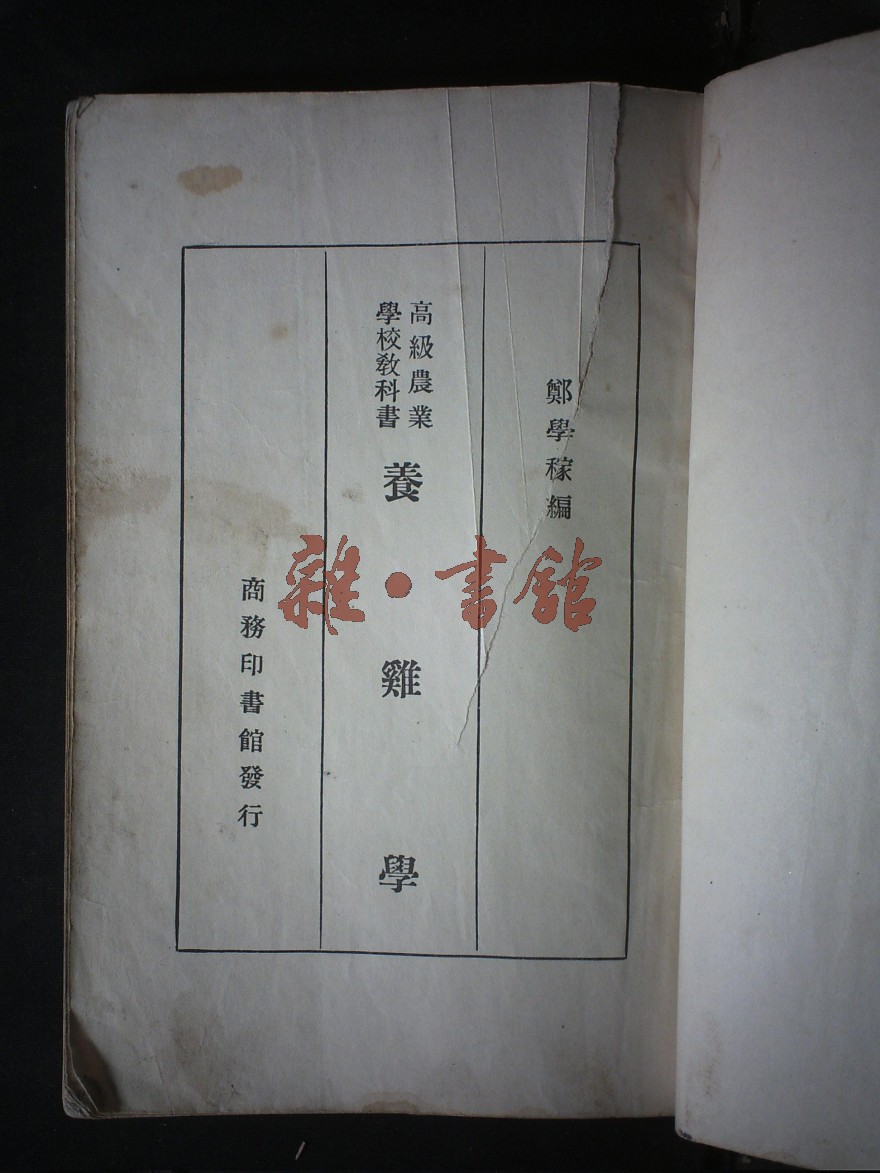 鄭學稼編
高級農業
學校教科書
養雞學
商務印書館發行
雜·書館